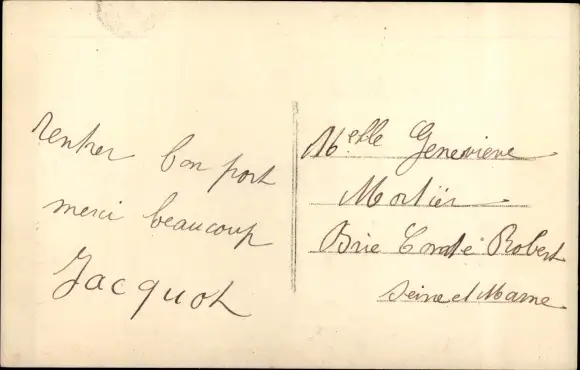 rentrer bon port
merci beaucoup
Jacquot
Melle Genevieve
Mortier
Brie Comte Robert
Seine et Marne